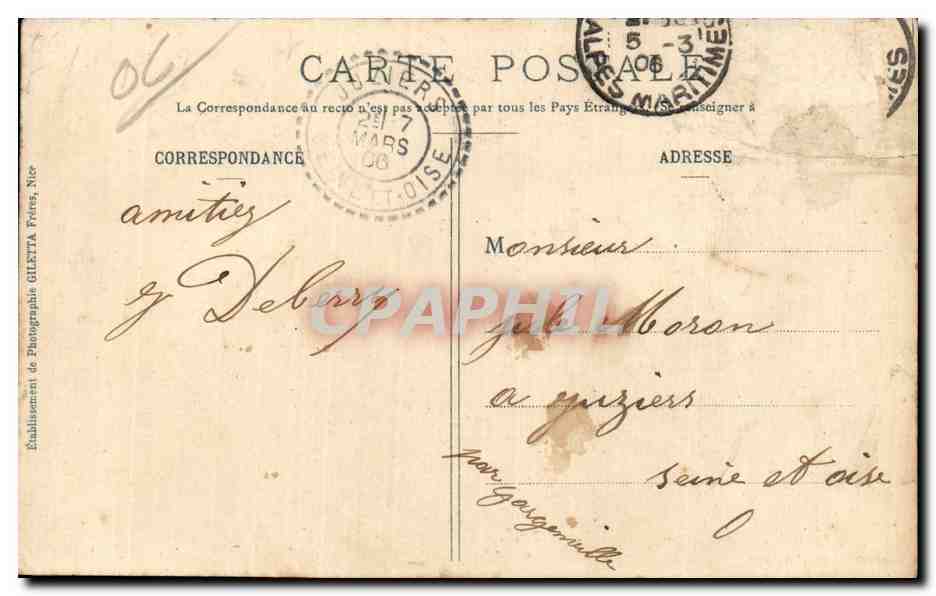 06
CARTE POSTALE
La Correspondance au recto n'est pas acceptée par tous les Pays Étrangers. (Se renseigner à
CORRESPONDANCE
amitiez
Deberry
ADRESSE
Monsieur
jule Moron
a juziers
seine et oise
par gargenville
Établissement de Photographie GILETTA Frères, Nice
JUZIERS
7
MARS
06
SEINE-ET-OISE
5 -3
06
ALPES MARITIMES
ES
CPAPHIL